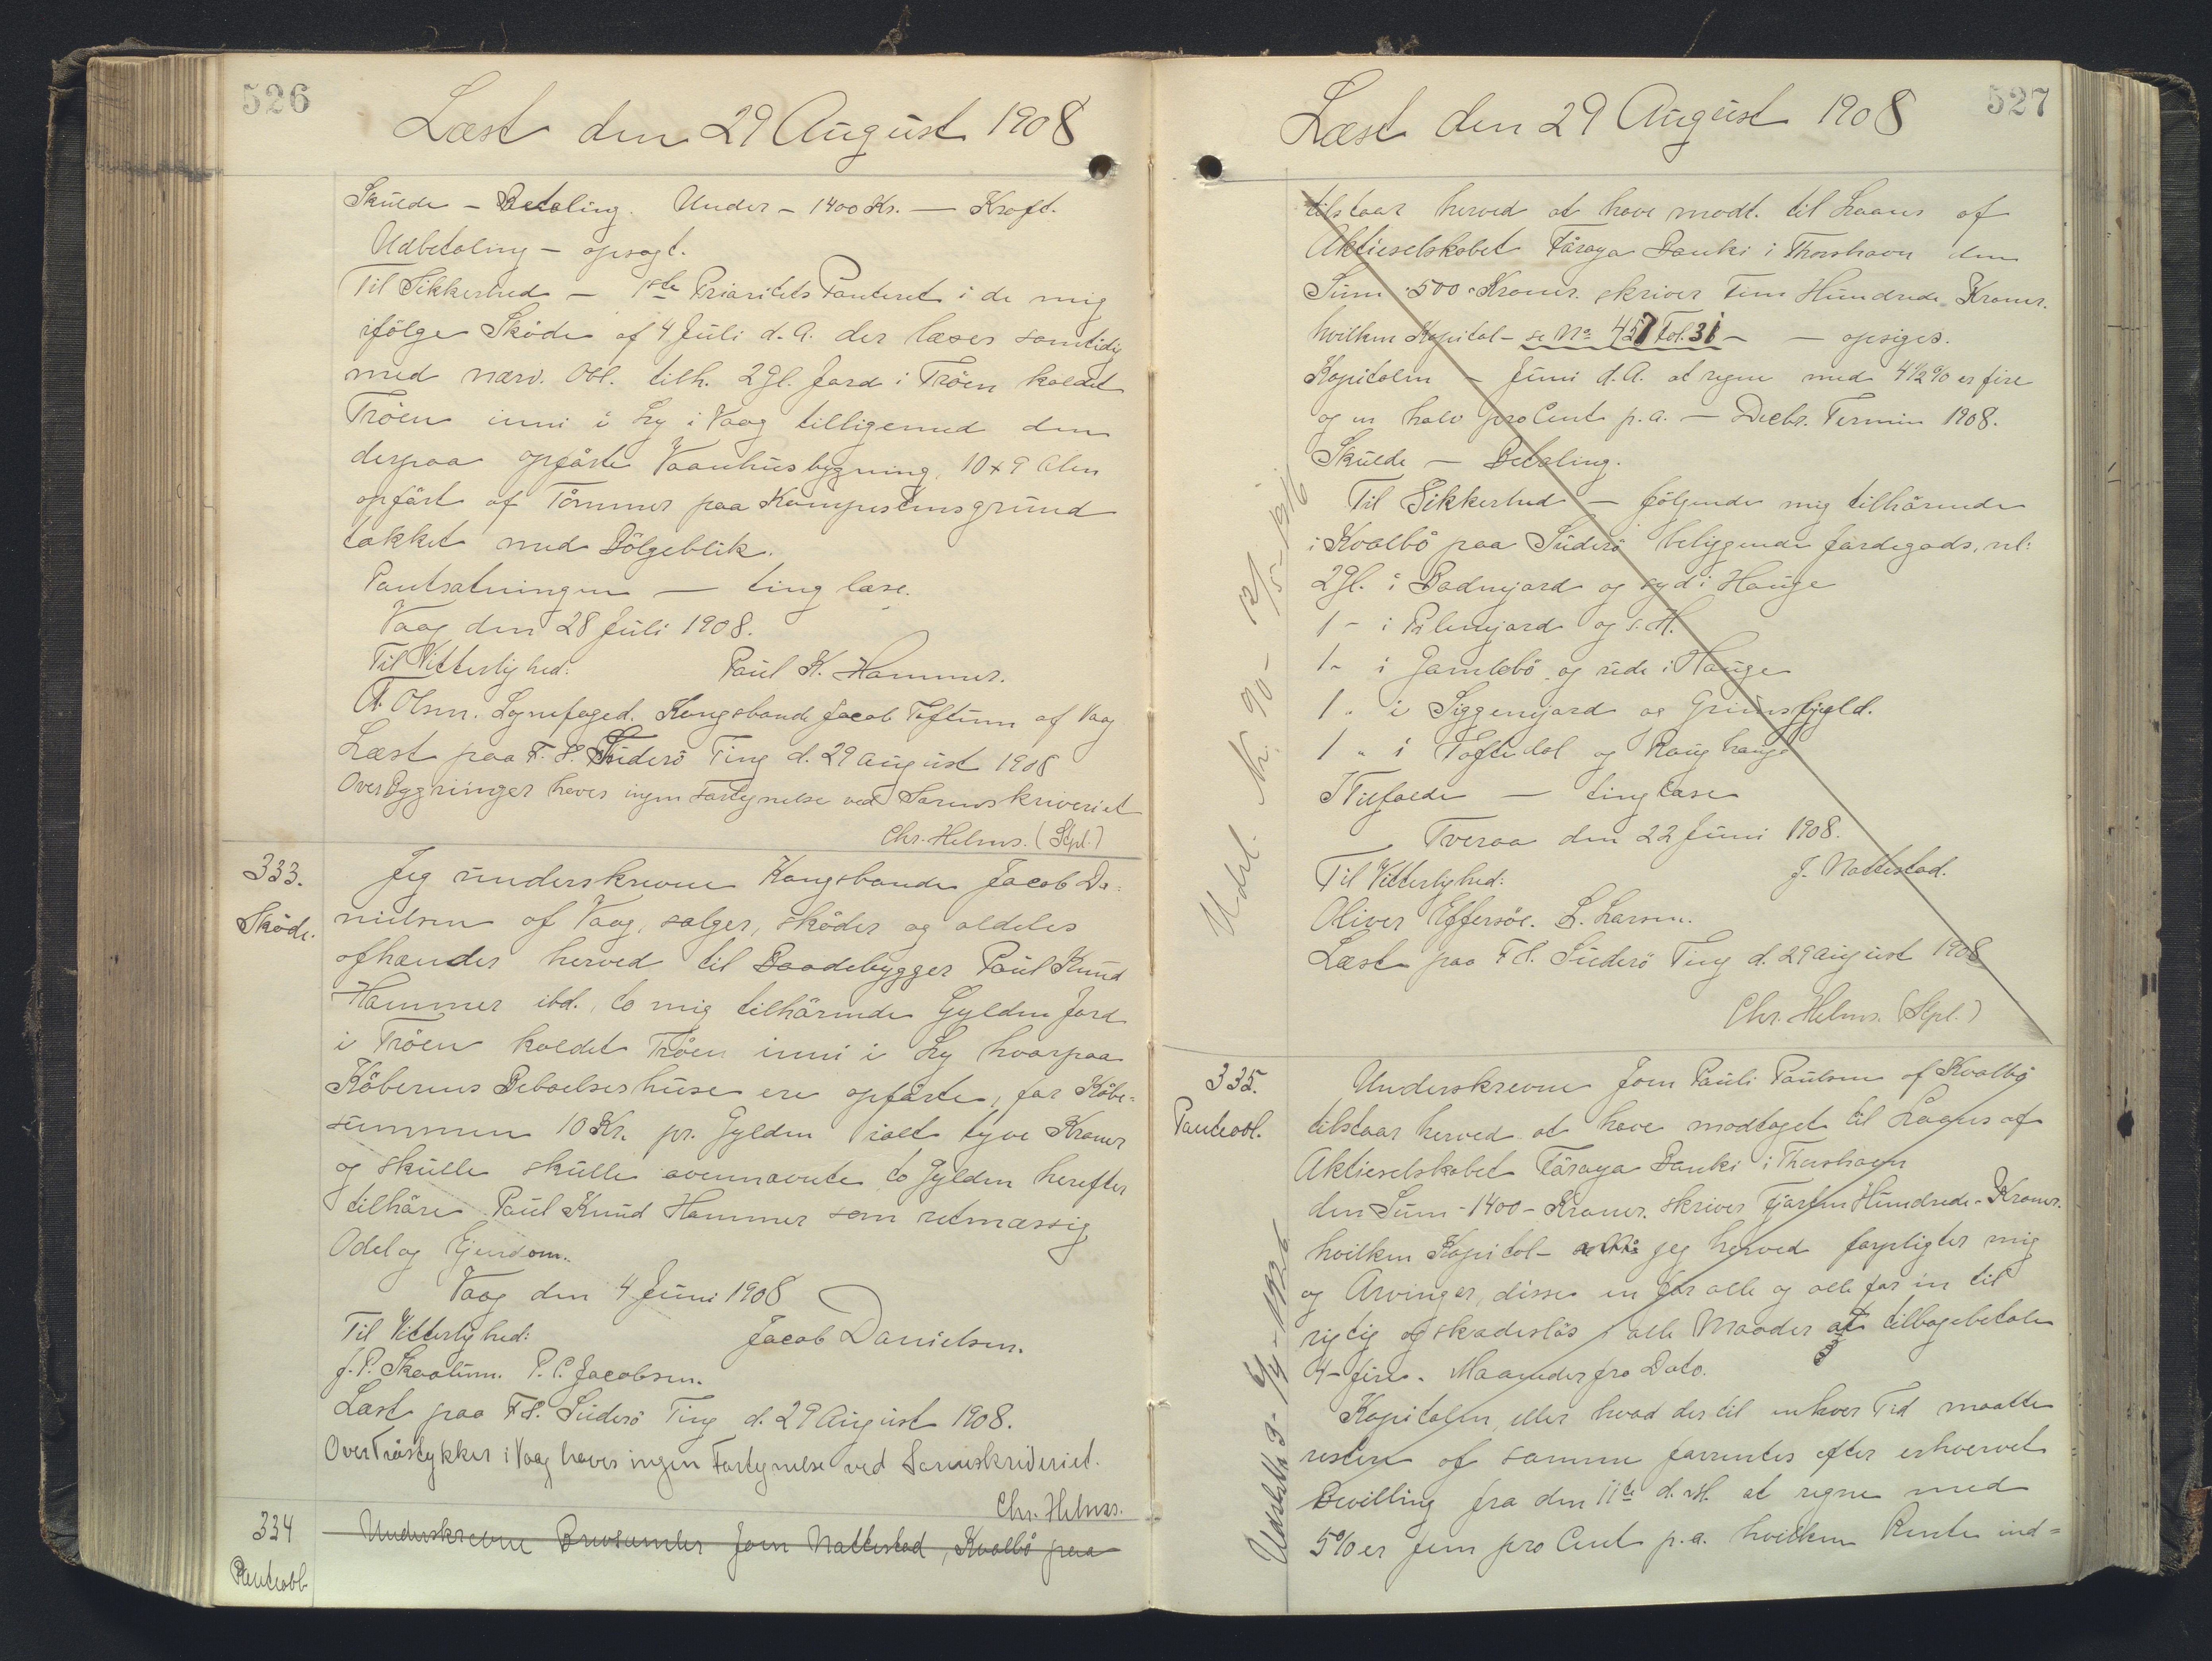 526
Læst den 29 August 1908
Skulde – Betaling. Under – 1400 Kr. – Kraft.
Udbetaling – opsagt.
Til Sikkerhed – 1ste Prioritets Panteret i de mig
ifölge Sköde af 4 Juli d.A. der læses samtidig
med nærv. Obl. tilh. 2 Gl. Jord i Tröen kaldet
Tröen inni i Ly i Vaag tilligemed den
derpaa opförte Vaanhusbygning 10 x 9 Alen
opfört af Tömmer paa Kampestensgrund
takket med Bölgeblik.
Pantsætningen – ting læse.
Vaag den 28 Juli 1908.
Til Vitterlighed: Paul K. Hammer.
Olsen. Sysnefoged. Kongsbonde Jacob Toftum af Vaag
Læst paa F. S. Suderö Ting d. 29 August 1908
Over Bygninger haves ingen Fortegnelse ved Sorenskriveriet
Chr. Helms. (Stpl.)
333.
Sköde.
Jeg underskrevne Kongsbonde Jacob Da=
nielsen af Vaag, sælger, sköder og aldeles
afhænder herved til Baadebygger Paul Knud
Hammer ibd., to mig tilhörende Gylden Jord
i Tröen kaldet Tröen inni i Ly hvorpaa
Köberens Beboelseshuse ere opförte, for Köbe=
summen 10 Kr. pr. Gylden ialt tyve Kroner
og skulle skulle ovennævnte to Gylden herefter
tilhöre Paul Knud Hammer som retmæssig
Odel og Ejendom.
Vaag den 4 Juni 1908
Til Vitterlighed: Jacob Danielsen.
J. P. Skaalum. P. C. Jacobsen.
Læst paa F. S. Suderö Ting d. 29 August 1908.
Over Tröstykker i Vaag haves ingen Fortegnelse ved Sorenskriveriet.
Chr. Helms.
334
Panteobl
Underskrevne Brevsamler Joen Nattestad, Kvalbö paa
527
Læst den 29 August 1908
tilstaar herved at have modt. til Laans af
Aktieselskabet Föroya Banki i Thorshavn den
Sum 500 Kroner. skriver Fem Hundrede Kroner.
hvilken Kapital – se No 457 Fol. 31 – – opsiges.
Kapitalen – Juni d.A. at regne med 4½ % er fire
og en halv pro Cent p.a. – Decbr. Termin 1908.
Skulde – Betaling.
Til Sikkerhed – fölgende mig tilhörende
i Kvalbö paa Suderö beliggende Jordegods, nl:
2 Gl. i Badnijard og syd i Hauge
1 – i Pilenijard og s. H.
1 - i Gamlebö og ude i Hauge
1 " i Siggenjard og Grimsfjæld.
1 " i Toftedal og Hauge
I Tilfælde – ting læse
Tveraa den 22 Juni 1908.
Til Vitterlighed: J. Nattestad.
Oliver Effersöe. L. Larsen.
Læst paa F S. Suderö Ting d. 29 August 1908
Chr. Helms. (Stpl.)
Udsl. Nr. 90 – 12/5 – 1916
335.
Panteobl.
Underskrevne Joen Pauli Paulsen af Kvalbö
tilstaar herved at have modtaget til Laans af
Aktieselskabet Föroya Banki i Thorshavn
den Sum – 1400 – Kroner. skriver Fjorten Hundrede – Kroner.
hvilken Kapital – jeg herved forpligter mig
og Arvinger, disse en for alle og alle for en til
rigtig og skadeslös i alle Maader at tilbagebetale
4 – fire – Maaneder fra Dato.
Kapitalen, eller hvad der til enhver Tid maatte
restere af samme forrentes efter erhvervet
Bevilling fra den 11te d. M. at regne med
5% er fem pro Cent p.a. hvilken Rente ind=